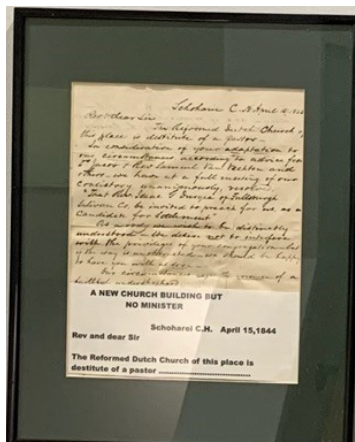 Schoharie C. H. April 15, 1844
Rev & dear Sir
The Reformed Dutch Church of
this place is destitute of a pastor.
In consideration of your adaptation to
our circumstances according to advice from
Jacob & Rev Samuel Van Vechten and
others, we have at a full meeting of our
Consistory unanimously, resolved
"That Rev. Isaac
Sullivan Co. be invited to preach for us as a
Candidate for Settlement"
we wish to be distinctly
understood we desire not to interfere
with the privileges of your congregation but
if the way is we should be happy
to have you with us soon.
Our circumstances of a
faithful undershepherd
A NEW CHURCH BUILDING BUT
NO MINISTER
Schoharei C.H. April 15,1844
Rev and dear Sir
The Reformed Dutch Church of this place is
destitute of a pastor ................................